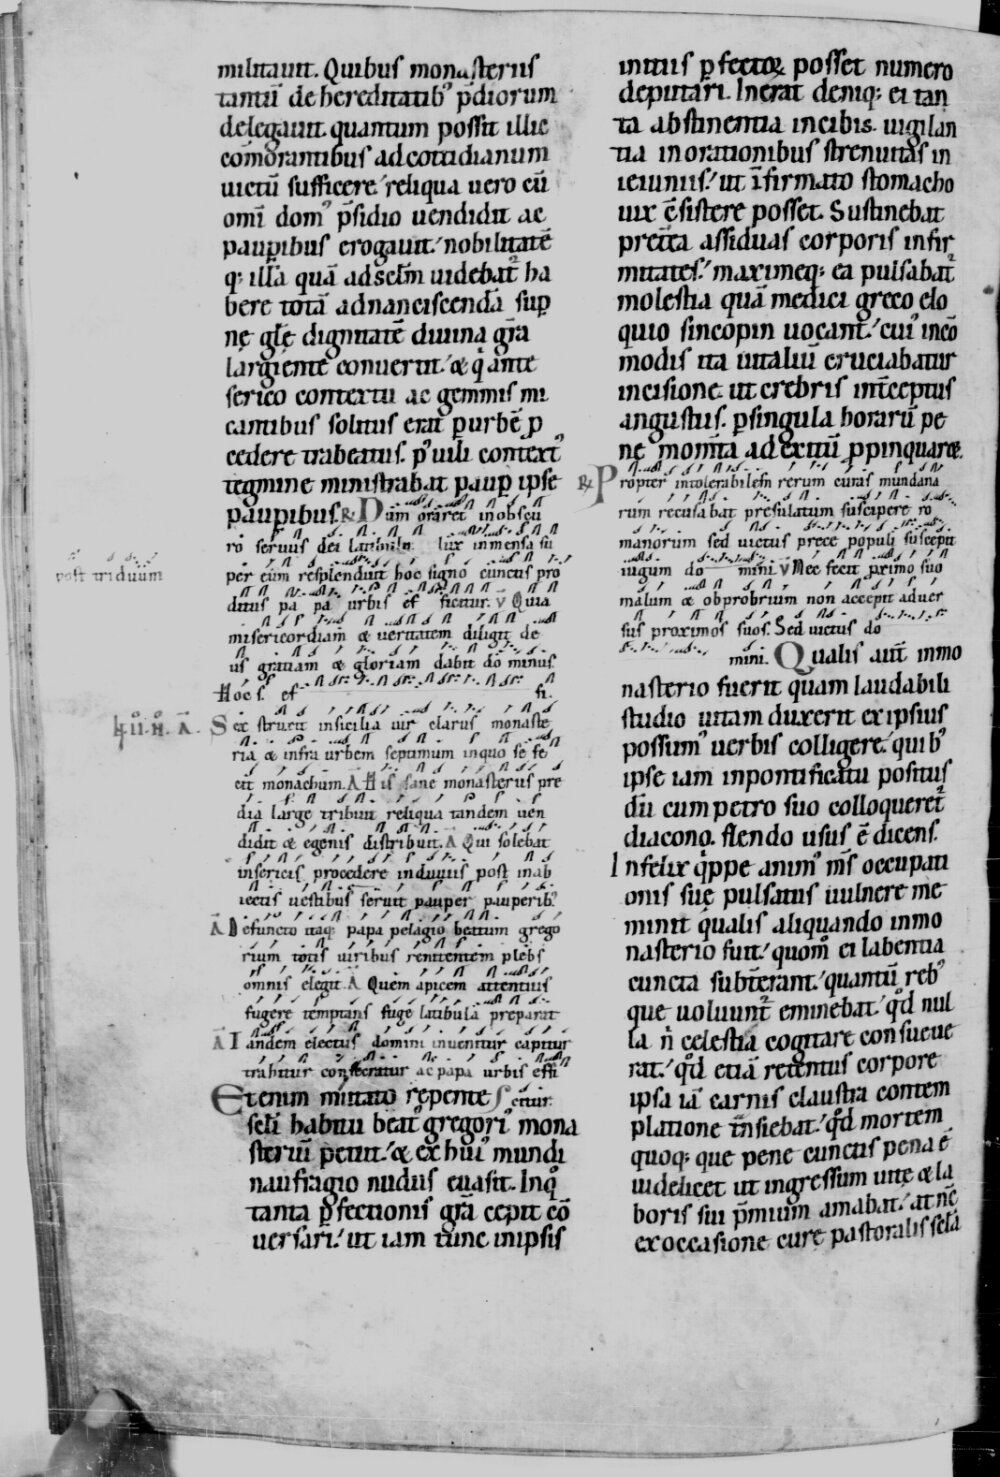 militauit. Quibus monasteriis
tantū de hereditatib; p̄diorum
delegauit. quantum possit illic
cōmorantibus ad cotidianum
uictū sufficere. reliqua uero cū
omī dom' p̄sidio uendidit ac
paup̱ibus erogauit. nobilitatē
q; illā quā ad sclm̄ uidebat᷑ ha
bere totā ad nanciscendā sup̱
nę glę dignitatē diuina grā
largiente conuertit. & q̇ ante
serico contextu ac gemmis mi
cantibus solitus erat p̱ urbē p
cedere trabeatus. p' uili context'
tegmine ministrabat paup̱ ipse
paup̱ibus. R Dum oraret in obscu
ro seruus dei latibulo lux inmensa su
per eum resplenduit hoc signo cunctus pro
post triduum
ditus pa pa urbis ef ficitur. V Quia
misericordiam & ueritatem diligit de
us gratiam & gloriam dabit do minus.
Hoc s. ef fi.
Sex struxit in sicilia uir clarus monaste
ria & infra urbem septimum in quo se fe
cit monachum. A His sane monasteriis pre
dia large tribuit reliqua tandem uen
didit & egenis distribuit. A Qui solebat
in sericis procedere indutus post in ab
iectis uestibus seruit pauper pauperib;
A Defuncto itaq; papa pelagio beatum grego
rium totis uiribus renitentem plebs
omnis elegit. A Quem apicem attentius
fugere temptans fuge latibula preparat
A Tandem electus domini inuenitur capitur
trahitur consecratur ac papa urbis effi
Etenim mutato repente citur.
scli habitu beat' gregori' mona
steriū petiit. & ex hui' mundi
naufragio nudus euasit. In q̊
tanta p̱fectionis grā cepit cō
uersari. ut iam tunc in ipsis
initiis p̱fectoꝝ posset numero
deputari. Inerat deniq; ei tan
ta abstinentia in cibis. uigilan
tia in orationibus strenuitas in
ieiuniis. ut īfirmato stomacho
uix c̄sistere posset. Sustinebat
pret̄ea assiduas corporis infir
mitates. maximeq; ea pulsabat᷑
molestia quā medici greco elo
quio sincopin uocant. cui' incō
modis ita uitaliū cruciabatur
incisione. ut crebris int̄ceptus
angustiis. p̱ singula horarū pe
ne mom̄ta ad exitū ppinquaret.
R Propter intolerabilem rerum curas mundana
rum recusabat presulatum suscipere ro
manorum sed uictus prece populi suscepit
iugum do mini. V Nec fecit primo suo
malum & obprobrium non accepit aduer
sus proximos suos. Sed uictus do
mini. Qualis aut̄ in mo
nasterio fuerit quam laudabili
studio uitam duxerit ex ipsius
possum' uerbis colligere. quib;
ipse iam in pontificatu positus
dū cum petro suo colloqueret᷑
diacono. flendo usus ē dicens.
Infelix q̇ppe anim' m̄s occupati
onis suę pulsatus uulnere me
minit qualis aliquando in mo
nasterio fuit. quom̊ ei labentia
cuncta subt̄erant. quantū reb;
que uoluunt᷑ eminebat. qd̊ nul
la n̄ celestia cogitare consueue
rat. qd̊ etiā retentus corpore
ipsa iā carnis claustra contem
platione t̄nsiebat. qd̊ mortem
quoq; que pene cunctis pena ē
uidelicet ut ingressum uitę & la
boris sui p̄mium amabat. at nc̄
ex occasione curę pastoralis sclā